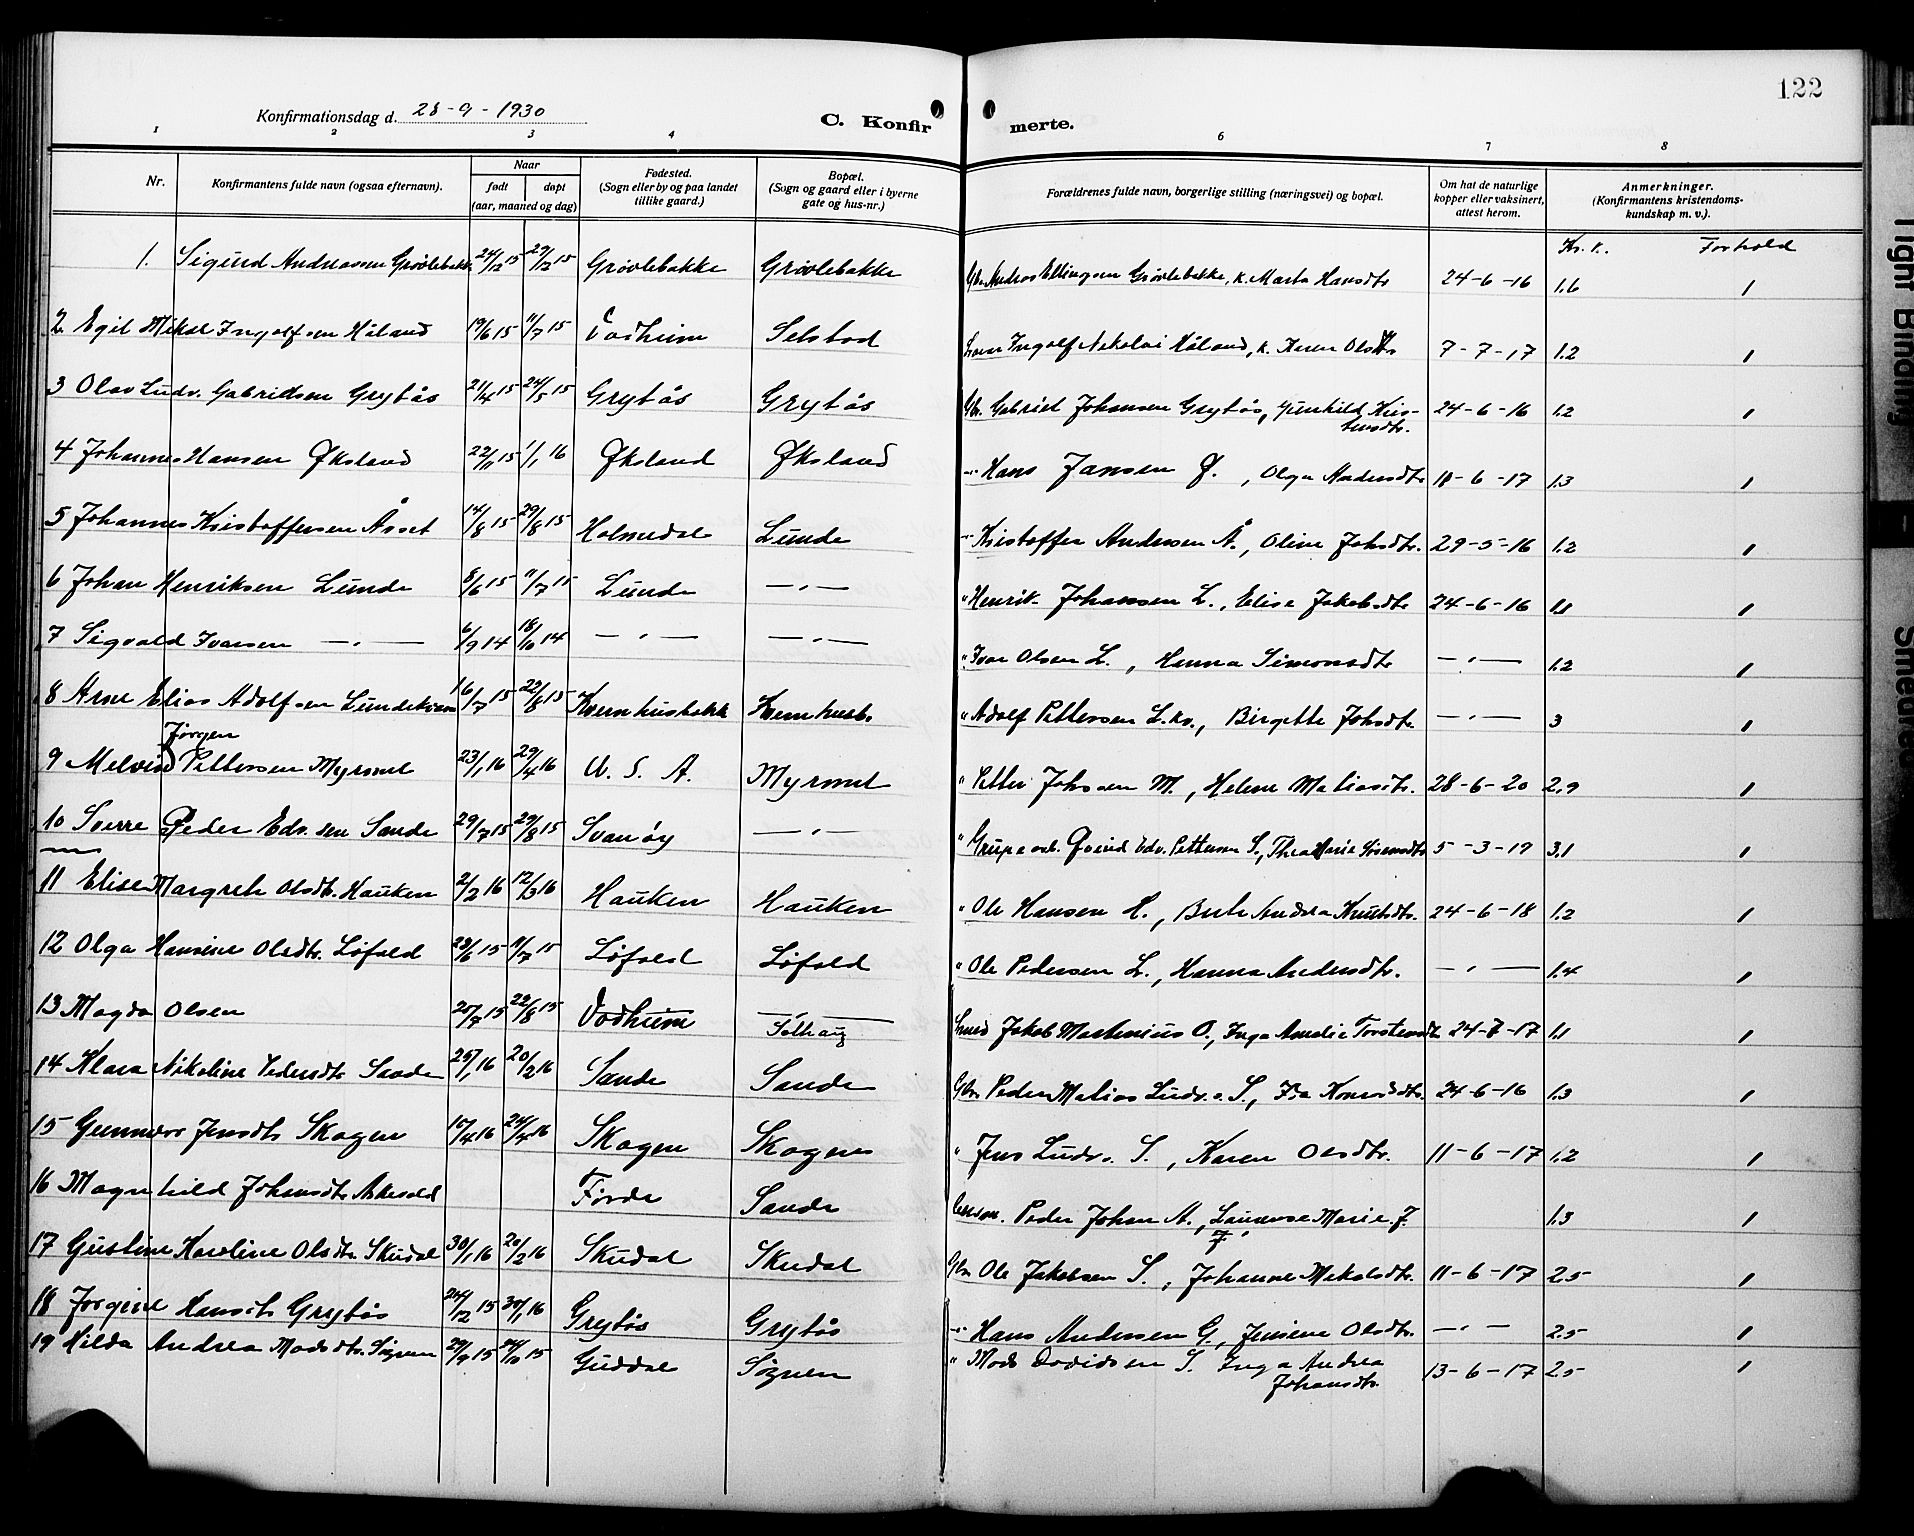 122
Konfirmationsdag d. 28-9-1930
C. Konfirmerte.
1 2 3 4 6 7 8
Nr. Konfirmantens fulde navn (ogsaa efternavn). Naar født døpt (aar, maaned og dag) Fødested. (Sogn eller by og paa landet tillike gaard.) Bopæl. (Sogn og gaard eller i byerne gate og hus-nr.) Forældrenes fulde navn, borgerlige stilling (næringsvei) og bopæl. Om hat de naturlige kopper eller vaksinert, attest herom. Anmerkninger. (Konfirmantens kristendomskundskap m. v.).
Kr. k. Forhold
1. Sigurd Andreassen Grövlebakk 24/12 15 29/12 15 Grövlebakke Grövlebakke Gbr. Andreas Ellingsen Grövlebakke, k. Marta Hansdtr 24-6-16 1.6 1
2 Egil Mikal Ingolfsen Håland 19/6 15 11/7 15 Vadheim Selstad Ingolf Nikolai Håland, k. Karen Olsdtr 7-7-17 1.2 1
3 Olav Ludv. Gabrielsen Grytås 21/4 15 24/5 15 Grytås Grytås Gbr. Gabriel Johansen Grytås, Gunhild Kristensdtr. 24-6-16 1.2 1
4 Johannes Hansen Öksland 22/11 15 1/1 16 Öksland Öksland -"- Hans Jansen Ø., Olga Andersdtr 10-6-17 1.3 1
5 Johannes Kristoffersen Åset 14/8 15 29/8 15 Holmedal Lunde -"- Kristoffer Andersen Å., Oline Johsdtr. 29-5-16 1.2 1
6 Johan Henriksen Lunde 8/6 15 11/7 15 Lunde —"— " Henrik Johansen L., Elise Jakobsdtr 24-6-16 1.1 1
7 Sigvald Ivarsen —"— 6/9 14 18/10 14 —"— —"— " Ivar Olsen L., Hanna Simonsdtr —"— 1.2 1
8 Arne Elias Adolfsen Lundekvam 16/7 15 22/8 15 Kvernhusbakk Kvernhusb. " Adolf Pettersen L.kv., Birgitte Johsdtr. —"— 3 1
9 Melvin Jörgen Pettersen Myrmel 23/1 16 29/4 16 U. S. A. Myrmel " Petter Johsen M., Helene Matiasdtr. 28-6-20 2.9 1
10 Sverre Peder Edv.sen Sande 29/7 15 29/8 15 Svanöy —"— " Edv. Pettersen S., Thea Marie Sörensdtr 5-3-19 3.1 1
11 Elise Margrete Olsdtr. Hauken 2/2 16 12/3 16 Hauken Hauken " Ole Hansen H., Berte Andrea Knutsdtr. 24-6-18 1.2 1
12 Olga Hansine Olsdtr. Löfald 23/6 15 11/7 15 Löfald Löfald " Ole Pedersen L., Hanna Andersdtr. —"— 1.4 1
13 Magda Olsen 20/7 15 22/8 15 Vadheim Solhaug Smed Jakob Martinius O., Inga Amalie Torstensdtr 24-7-17 1.1 1
14 Klara Nikoline Pedersdtr Sande 25/1 16 20/2 16 Sande Sande Gbr. Peder Matias Ludv.s. S., Ida Konradsdtr. 24-6-16 1.3 1
15 Gunnvor Jensdtr Skogen 10/4 16 24/4 16 Skogen Skogen " Jens Ludv.s. S., Karen Olsdtr. 11-6-17 1.2 1
16 Magnhild Johansdtr. Askvold Förde Sande Peder Johan A., Laurense Marie J. 1.3 1
17 Gustine Karoline Olsdtr. Skudal 30/1 16 20/2 16 Skudal Skudal Gbr Ole Jakobsen S., Johanne Mikalsdtr. 11-6-17 2.5 1
18 Jorgine Hansdtr Grytås 24/12 15 30/1 16 Grytås Grytås -"- Hans Andersen G., Jensine Olsdtr. —"— 2.5 1
19 Hilda Andrea Madsdtr. Sögnen 29/9 15 24/10 15 Guddal Sögnen " Mads Davidsen S. Inga Andrea Johansdtr. 13-6-17 2.5 1
Tight Binding